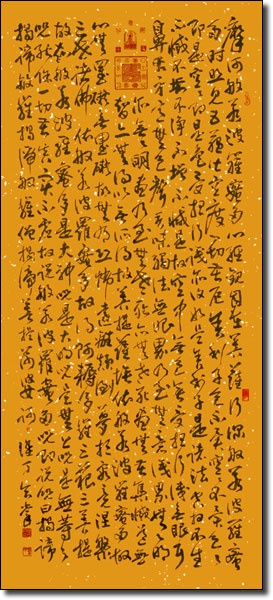 摩訶般若波羅蜜多心經觀自在菩薩行深般若波羅蜜
多時照見五蘊皆空度一切苦厄舍利子色不異空空不異色色
即是空空即是色受想行識亦復如是舍利子是諸法空相不生
不滅不垢不淨不增不減是故空中無色無受想行識無眼耳
鼻舌身意無色聲香味觸法無眼界乃至無意識界無無明
亦無無明盡乃至無老死亦無老死盡無苦集滅道無
智亦無得以無所得故菩提薩埵依般若波羅蜜多故
心無罣礙無罣礙故無有恐怖遠離顛倒夢想究竟涅槃
三世諸佛依般若波羅蜜多故得阿耨多羅三藐三菩提
故知般若波羅蜜多是大神咒是大明咒是無上咒是無等等
咒能除一切苦真實不虛故說般若波羅蜜多咒即說咒曰揭諦
揭諦波羅揭諦波羅僧揭諦菩提薩婆訶